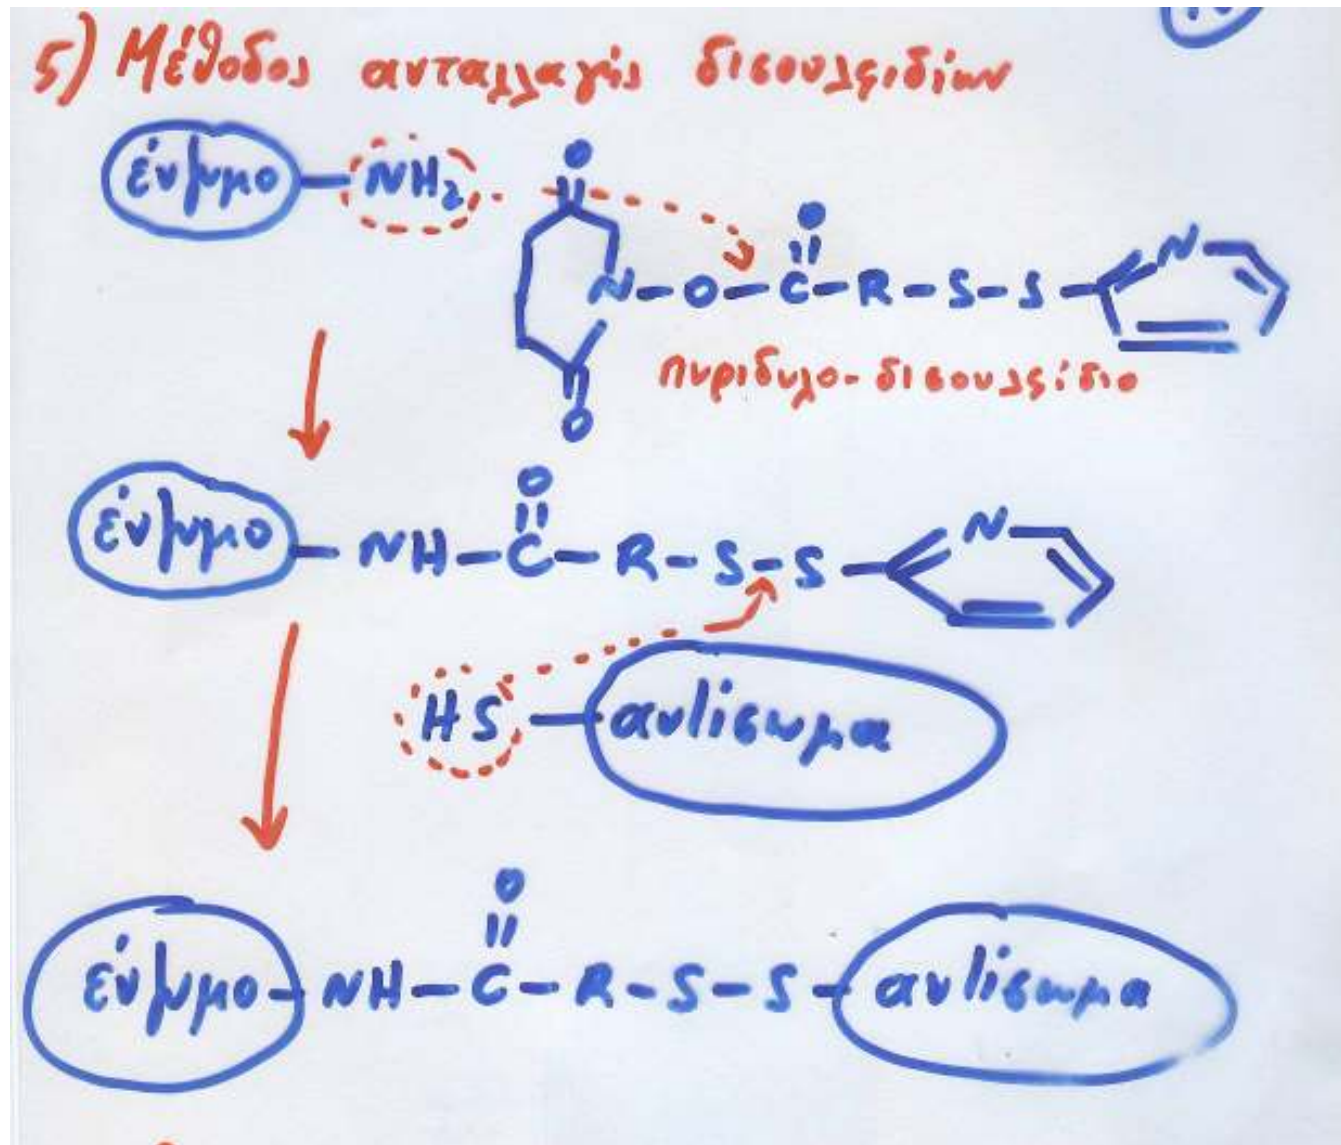 5) Μέθοδος ανταλλαγής δισουλφιδίων
ένζυμο — NH₂
O
O
N—O—C—R—S—S— N
O
πυριδυλο-δισουλφίδιο
O
ένζυμο — NH—C—R—S—S— N
HS — αντίσωμα
O
ένζυμο — NH—C—R—S—S— αντίσωμα